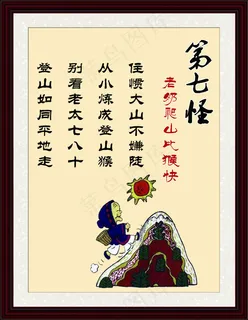 第七怪
老奶爬山比猴快
住惯大山不嫌陡
从小炼成登山猴
别看老太七八十
登山如同平地走